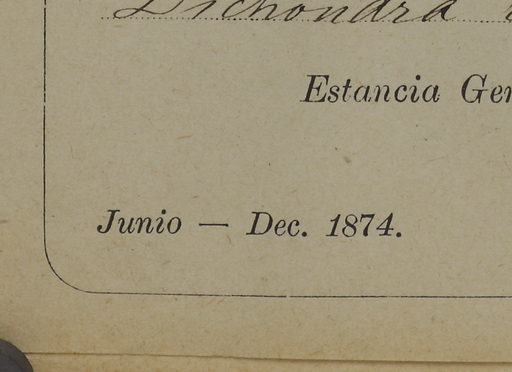 Dichondra
Estancia Ger
Junio — Dec. 1874.